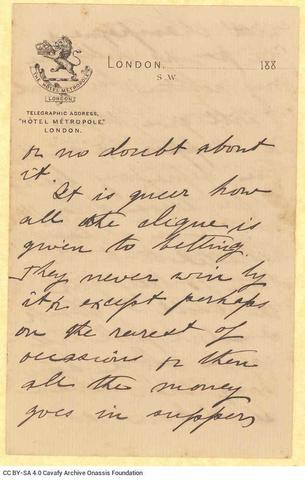 THE HÔTEL METROPOLE
LONDON
TELEGRAPHIC ADDRESS,
"HÔTEL MÉTROPOLE,"
LONDON.
LONDON, 188
S.W.
or no doubt about
it.
It is queer how
all the clique is
given to betting.
They never win by
it & except perhaps
on the rarest of
occasions or then
all the money
goes in suppers
CC BY-SA 4.0 Cavafy Archive Onassis Foundation